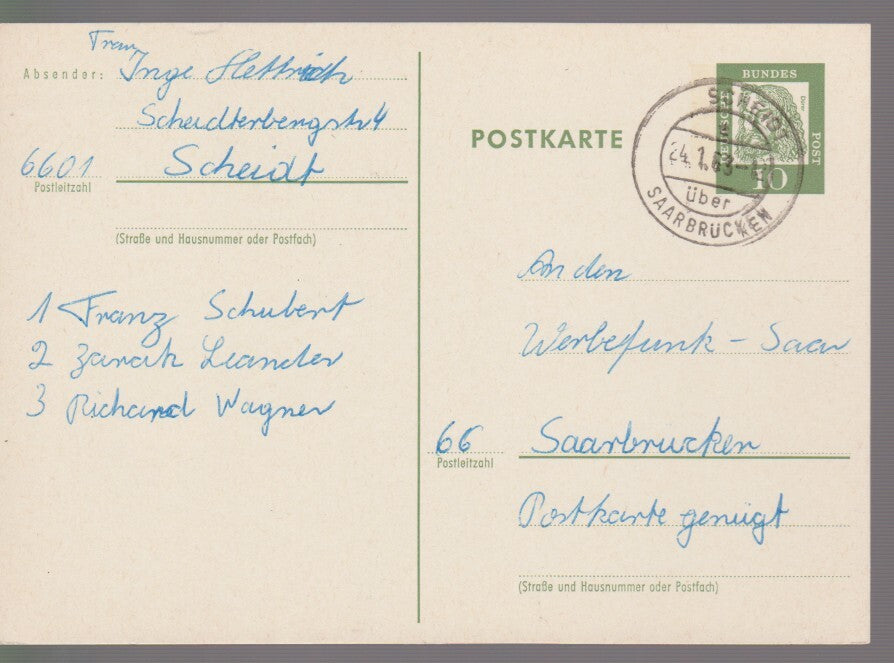 Frau
Absender: Inge Hettrich
Scheidterbergstr 4
6601 Scheidt
Postleitzahl
(Straße und Hausnummer oder Postfach)
1 Franz Schubert
2 Zarah Leander
3 Richard Wagner
POSTKARTE
DEUTSCHE BUNDES POST
Dürer
10
SCHEIDT
24.1.63
über
SAARBRÜCKEN
An den
Werbefunk - Saar
66 Saarbrucken
Postleitzahl
Postkarte genügt
(Straße und Hausnummer oder Postfach)